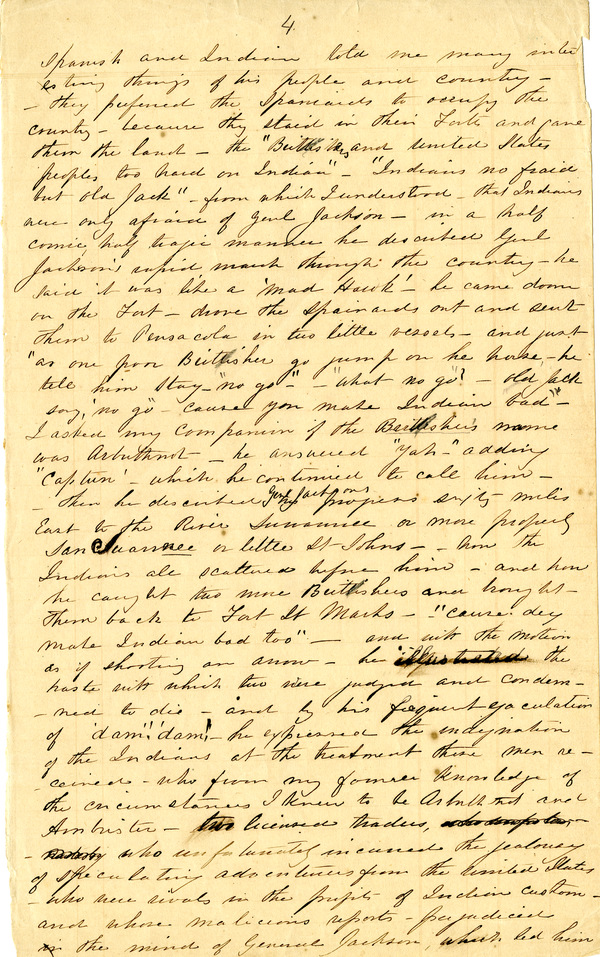 4.
Spanish and Indian told me many inter
esting things of his people and country —
— they preferred the Spaniards to occupy the
country — because they staid in their Forts and gave
them the land — the "Brittishers and United States
peoples too hard on Indian" — "Indians no fraid
but old Jack" — from which I understood — that Indians
were only afraid of Genl Jackson — in a half
comic half tragic manner he described Genl
Jackson's rapid march through the country — he
said it was like a 'mad Hawk' — he came down
on the Fort — drove the Spainards out and sent
them to Pensacola in two little vessels — and just
"as one poor Brittisher go jump on he horse, — he
tell him stay — "no go" — "what no go"? — old Jack
say, 'no go' — cause you make Indian bad" —
I asked my companion if the Brittisher's name
was Arbuthnot — he answered "Yah —" adding
"Captun' — which he continued to call him —
— then he described Genl Jackson's progress sixty miles
East to the River Suwannee or more properly
San Suannee or little St Johns — how the
Indians all scattered before him — and how
he caught two more Brittishers and brought —
them back to Fort St Marks — "cause dey
make Indian bad too" — and with the motion
as if shooting an arrow — he illustrated the
haste with which two were judged and condem —
— ned to die — and by his frequent ejaculation
of 'dam'! 'dam'! — he expressed the indignation
of the Indians at the treatment these men re —
— ceived — who from my former knowledge of
the circumstances I knew to be Arbuthnot and
Ambrister — two licensed traders,
— who unfortunately incurred the jealousy
of speculating adventurers from the United States
— who were rivals in the profits of Indian custom —
and whose malicious reports — prejudiced
the mind of General Jackson, which led him